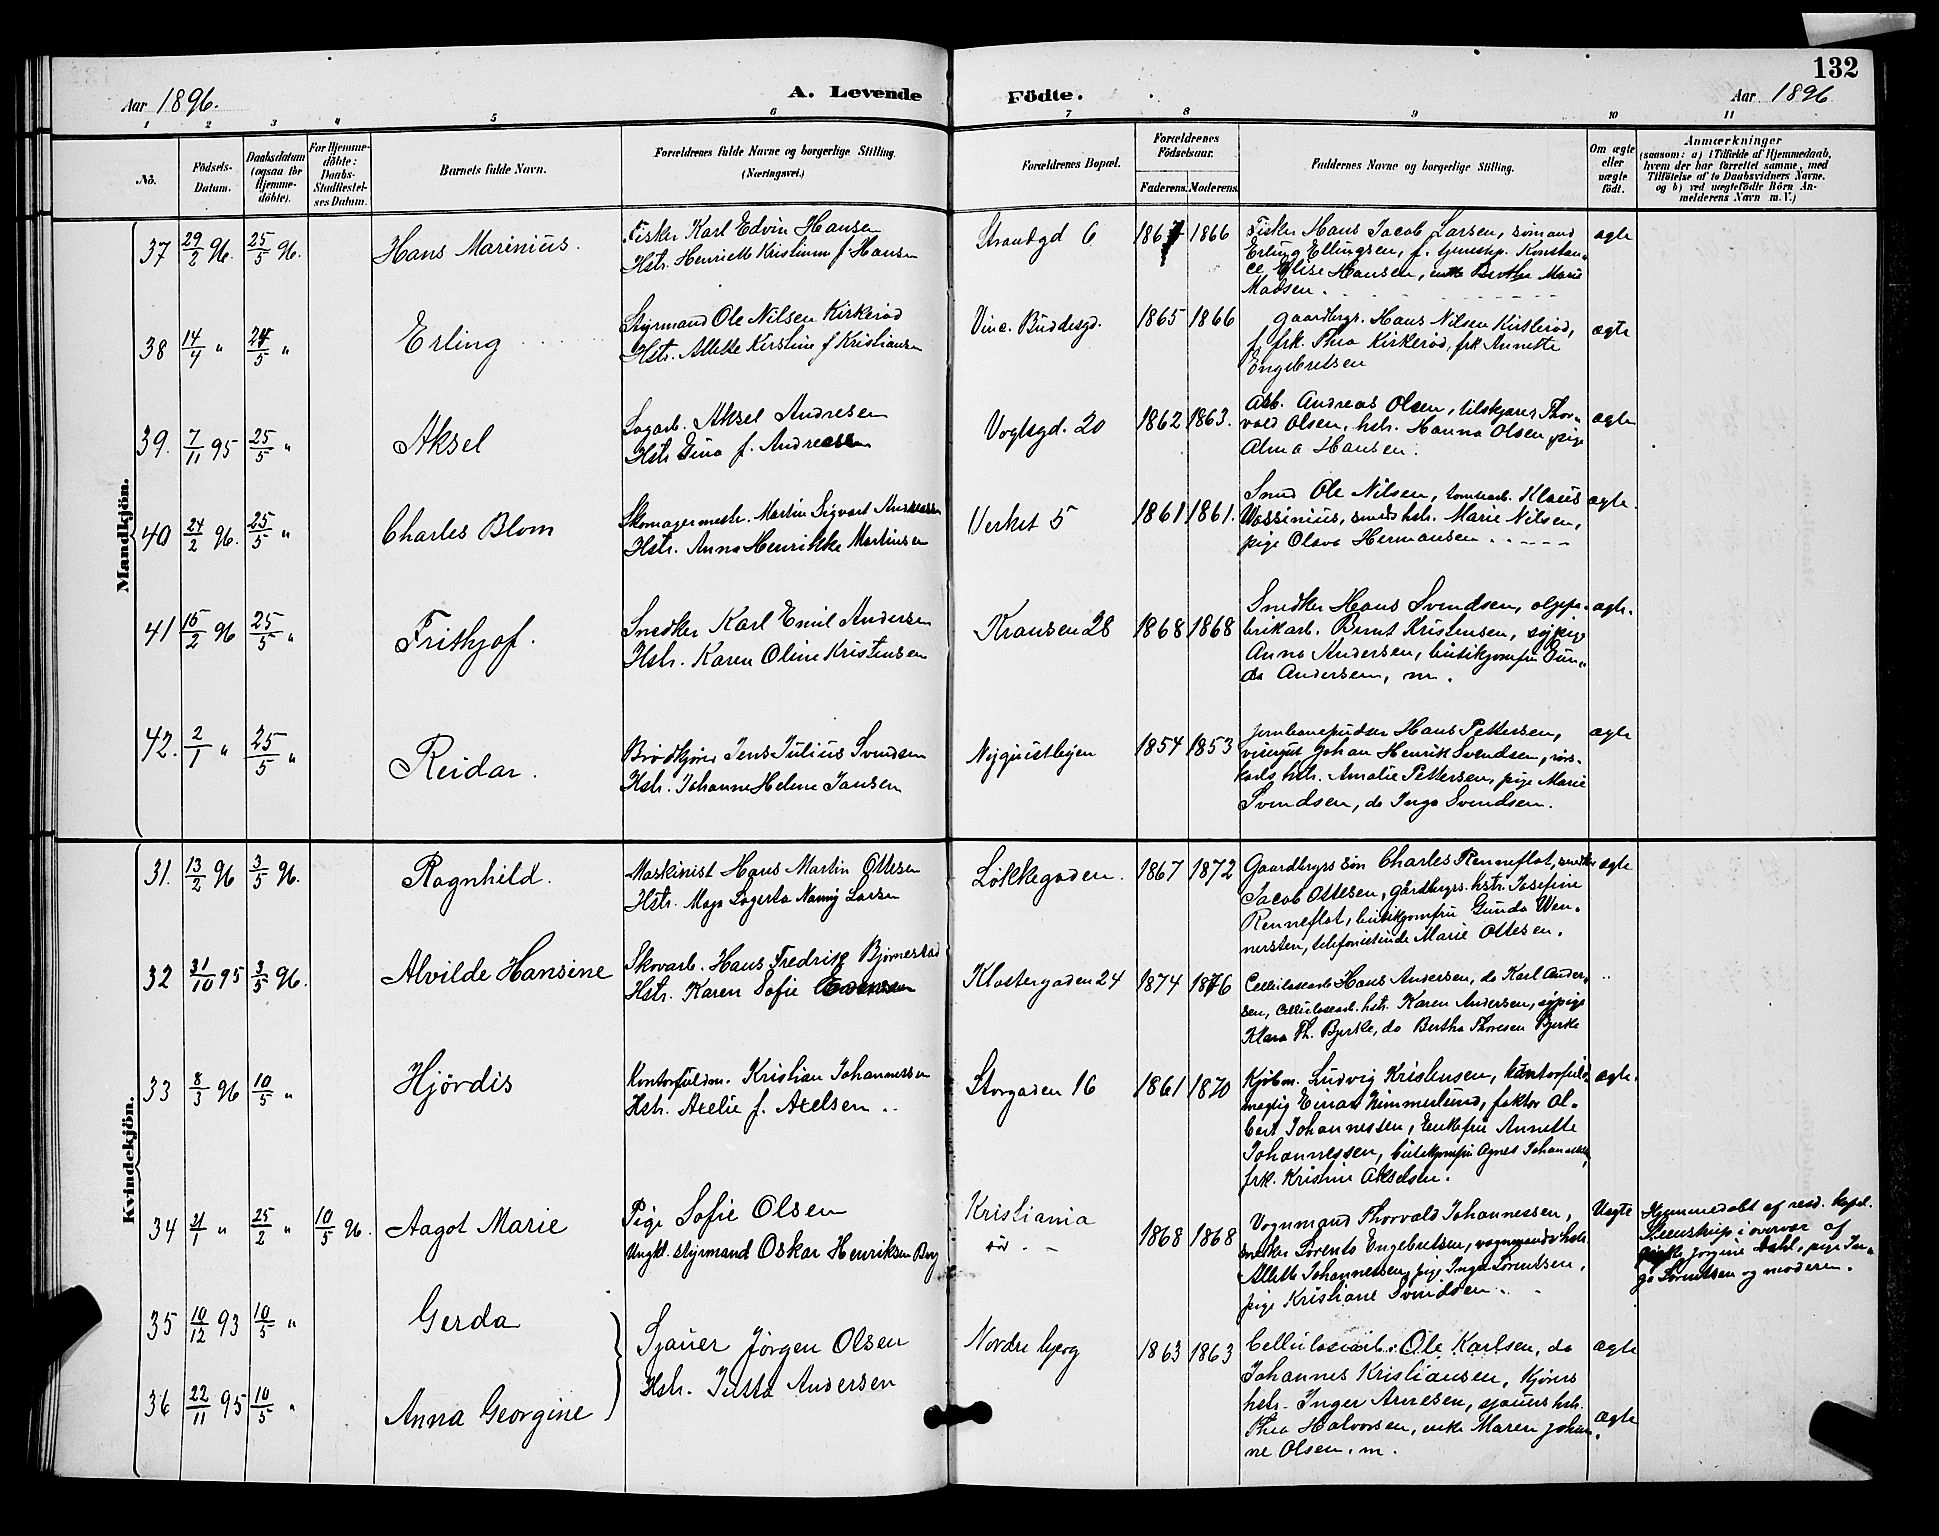 132
Aar 1896.
A. Levende Födte.
Aar 1896
1 2 3 4 5 6 7 8 9 10 11
No.
Födsels-
Datum.
Daabsdatum
(ogsaa for
Hjemme-
döbte).
For Hjemme-
döbte:
Daabs-
Stadfæstel-
ses Datum.
Barnets fulde Navn.
Forældrenes fulde Navne og borgerlige Stilling.
(Næringsvei.)
Forældrenes Bopæl.
Forældrenes
Födselsaar.
Faderens. Moderens.
Faddernes Navne og borgerlige Stilling.
Om ægte
eller
uægte
födt.
Anmærkninger
(saasom: a) i Tilfælde af Hjemmedaab,
hvem der har forrettet samme, med
Tilföielse af to Daabsvidners Navne.
og b) ved uægtefödte Börn An-
melderens Navn m. V.)
Mandkjön.
37 29/2 96. 25/5 96.
Hans Marinius.
Fisker Karl Edvin Hansen
Hstr. Henriette Kristinna f Hansen
Strandgd 6
1867 1866
Fisker Hans Jacob Larsen, sömand
Erling Ellingsen, f. tjenestep. Konstan-
ce Elise Hansen, enke Berthe Marie
Madsen.
ægte
38 14/4 " 24/5 "
Erling
Styrmand Ole Nilsen Kirkeröd
Hstr. Allette Kirstine f Kristiansen
Vinc. Buddesgd.
1865 1866
Gaardbgr. Hans Nilsen Kirkeröd,
f. frk. Thea Kirkeröd, frk Annette
Engebretsen
ægte
39. 7/11 95 25/5 "
Aksel
Sagarb. Aksel Andresen
Hstr Gina f. Andreassen
Vogtsgd. 20
1862 1863.
Arb. Andreas Olsen, tilskjærer Thor-
vald Olsen, hstr. Hanna Olsen pige
Alma Hansen.
ægte
40 24/2 96. 25/5 "
Charles Blom
Skomagermestr. Martin Sigvart Andreassen
Hstr. Anna Henrikke Martinsen
Verket 5
1861 1861.
Smed Ole Nilsen, tomtearb. Klaus
Wassinius, smeds hstr. Marie Nilsen,
pige Olava Hermansen
ægte.
41 15/2 96 25/5 "
Frithjof.
Snedker Karl Emil Andersen
Hstr. Karen Oline Kristensen
Kransen 28
1868 1868
Snedker Hans Svendsen,
brikarb. Bernt Kristensen, sypige
Anna Andersen, butikjomfru Gun-
da Andersen, m.
ægte.
42. 2/1 " 25/5 "
Reidar.
Brödkjörer Jens Julius Svendsen
Hstr. Johanne Helene Jansen
Nyquistbyen
1854 1853
Jernbanepudser Hans Pettersen,
visergut Johan Henrik Svendsen,
karls hstr. Amalie Pettersen, pige Marie
Svendsen, do Inga Svendsen.
ægte
Kvindekjön.
31. 13/2 96 3/5 96.
Ragnhild.
Maskinist Hans Martin Ottesen
Hstr. Maja Lagerta Nanny Larsen
Løkkegaden.
1867 1872
Gaardbgrs sön Charles Renneflot, snedker
Jacob Ottesen, gårdbgrs. hstr. Josefine
Renneflot, butikjomfru Gunda Wen-
nersten, telefonistinde Marie Ottesen.
ægte
32 31/10 95 3/5 96.
Alvilde Hansine
Skovarb. Hans Fredrik Bjørnestad
Hstr. Karen Sofie
Klostergaden 24
1874 1876
Cellulosearb Hans Andersen, do Karl Ander-
sen, Cellulosearb. hstr. Karen Andersen, sypige
Klara Th. Bjerke, do Bertha Thoresen Bjerke
"
33 8/3 96 10/5 "
Hjördis
Kontorfuldm. Kristian Johannessen
Hstr. Axelie f. Axelsen
Storgaden 16
1861 1870
Kjöbm. Ludvig Kristensen, kontorfuld-
mægtig Einar Zimmerlund, faktor Al-
bert Johannessen, Enkefru Annette
Johannessen, butikjomfru Agnes Johannessen,
frk. Kristine Akselsen.
ægte.
34 21/1 " 25/2 " 10/5 96.
Aagot Marie
Pige Sofie Olsen
Ungkl. styrmand Oskar Henriksen Berg
Kristiania
1868 1868
Vognmand Thorvald Johannessen,
snedker Lorents Engebretsen, vognmands hstr.
Allette Johannessen, pige Inga Lorentsen,
pige Kristiane Svendsen.
Uægte
Hjemmedøbt af resd. kapel.
Steenstrup i overvær af
Jorgine Dahl, pige In-
ga Lorentsen og moderen.
35 10/12 93 10/5 "
Gerda
Sjauer Jörgen Olsen
Hstr. Jutta Andersen
Nordre bjerg
1863 1863
Cellulosearb. Ole Karlsen, do
Johannes Kristiansen, Kjörers
hstr. Inger Arnesen, sjauers hstr.
Thea Halvorsen, enke Maren Johan-
ne Olsen. m.
ægte
36 22/11 95 10/5 "
Anna Georgine
ægte